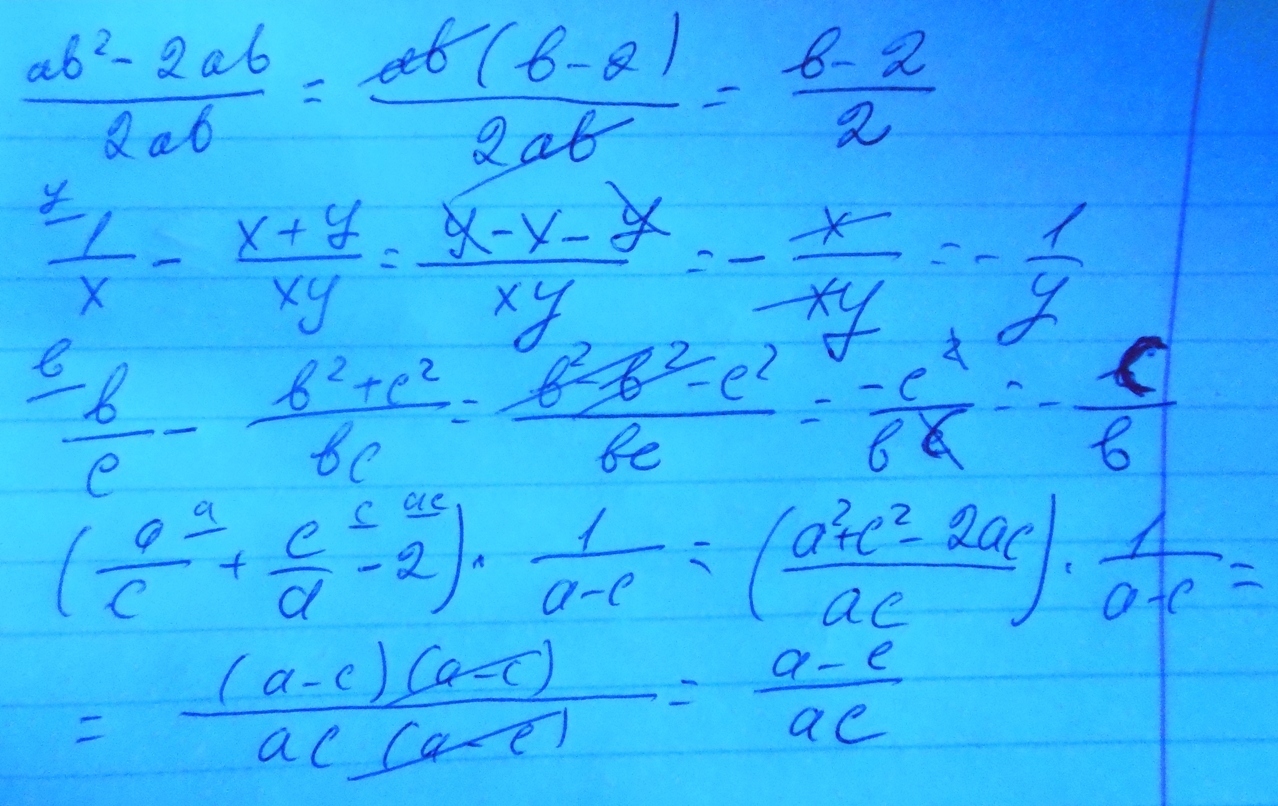 (ab² - 2ab)/(2ab) = (ab(b - 2))/(2ab) = (b - 2)/2
y 1/x - (x + y)/(xy) = (y - x - y)/(xy) = - x/(xy) = - 1/y
b b/c - (b² + c²)/(bc) = (b² - b² - c²)/(bc) = (-c²)/(bc) = - c/b
(a/c a + c/a c - 2 ac) · 1/(a - c) = ((a² + c² - 2ac)/(ac)) · 1/(a - c) =
= ((a - c)(a - c))/(ac(a - c)) = (a - c)/(ac)